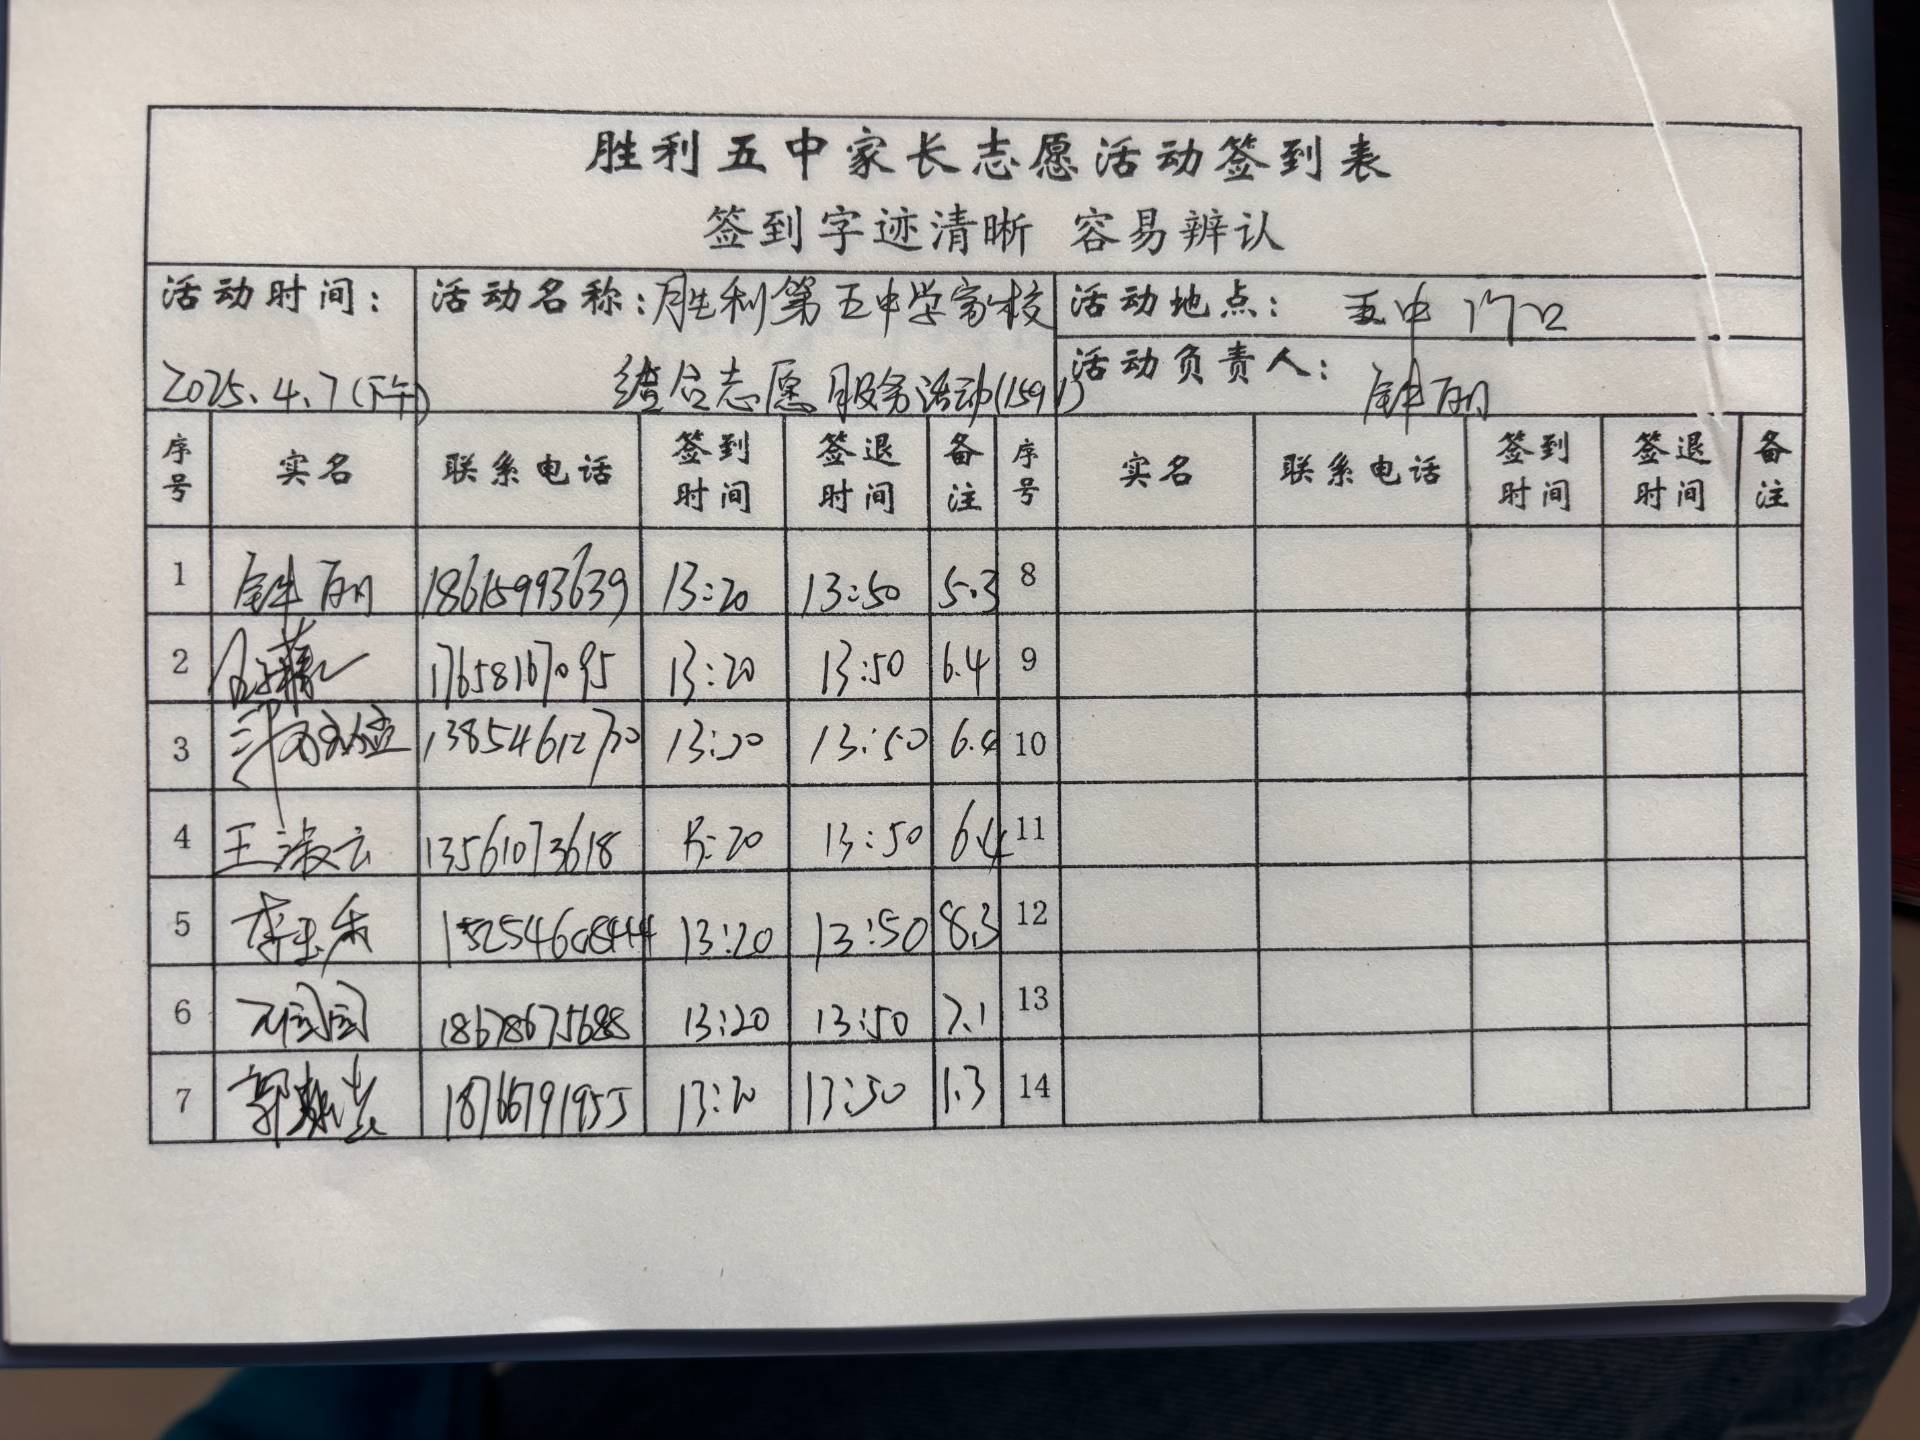 胜利五中家长志愿活动签到表
签到字迹清晰 容易辨认
活动时间： 2025.4.7(下午)
活动名称：胜利第五中学家校
综合志愿服务活动(159
活动地点： 五中门口
活动负责人：
序号 实名 联系电话 签到时间 签退时间 备注 序号 实名 联系电话 签到时间 签退时间 备注
1 18615993639 13:20 13:50 5.3 8
2 17658167095 13:20 13:50 6.4 9
3 13854612730 13:20 13:50 6.4 10
4 王淑云 13561073618 13:20 13:50 6.4 11
5 李玉香 15254608444 13:20 13:50 8.3 12
6 18678675688 13:20 13:50 7.1 13
7 郭 18766791955 13:20 13:50 1.3 14